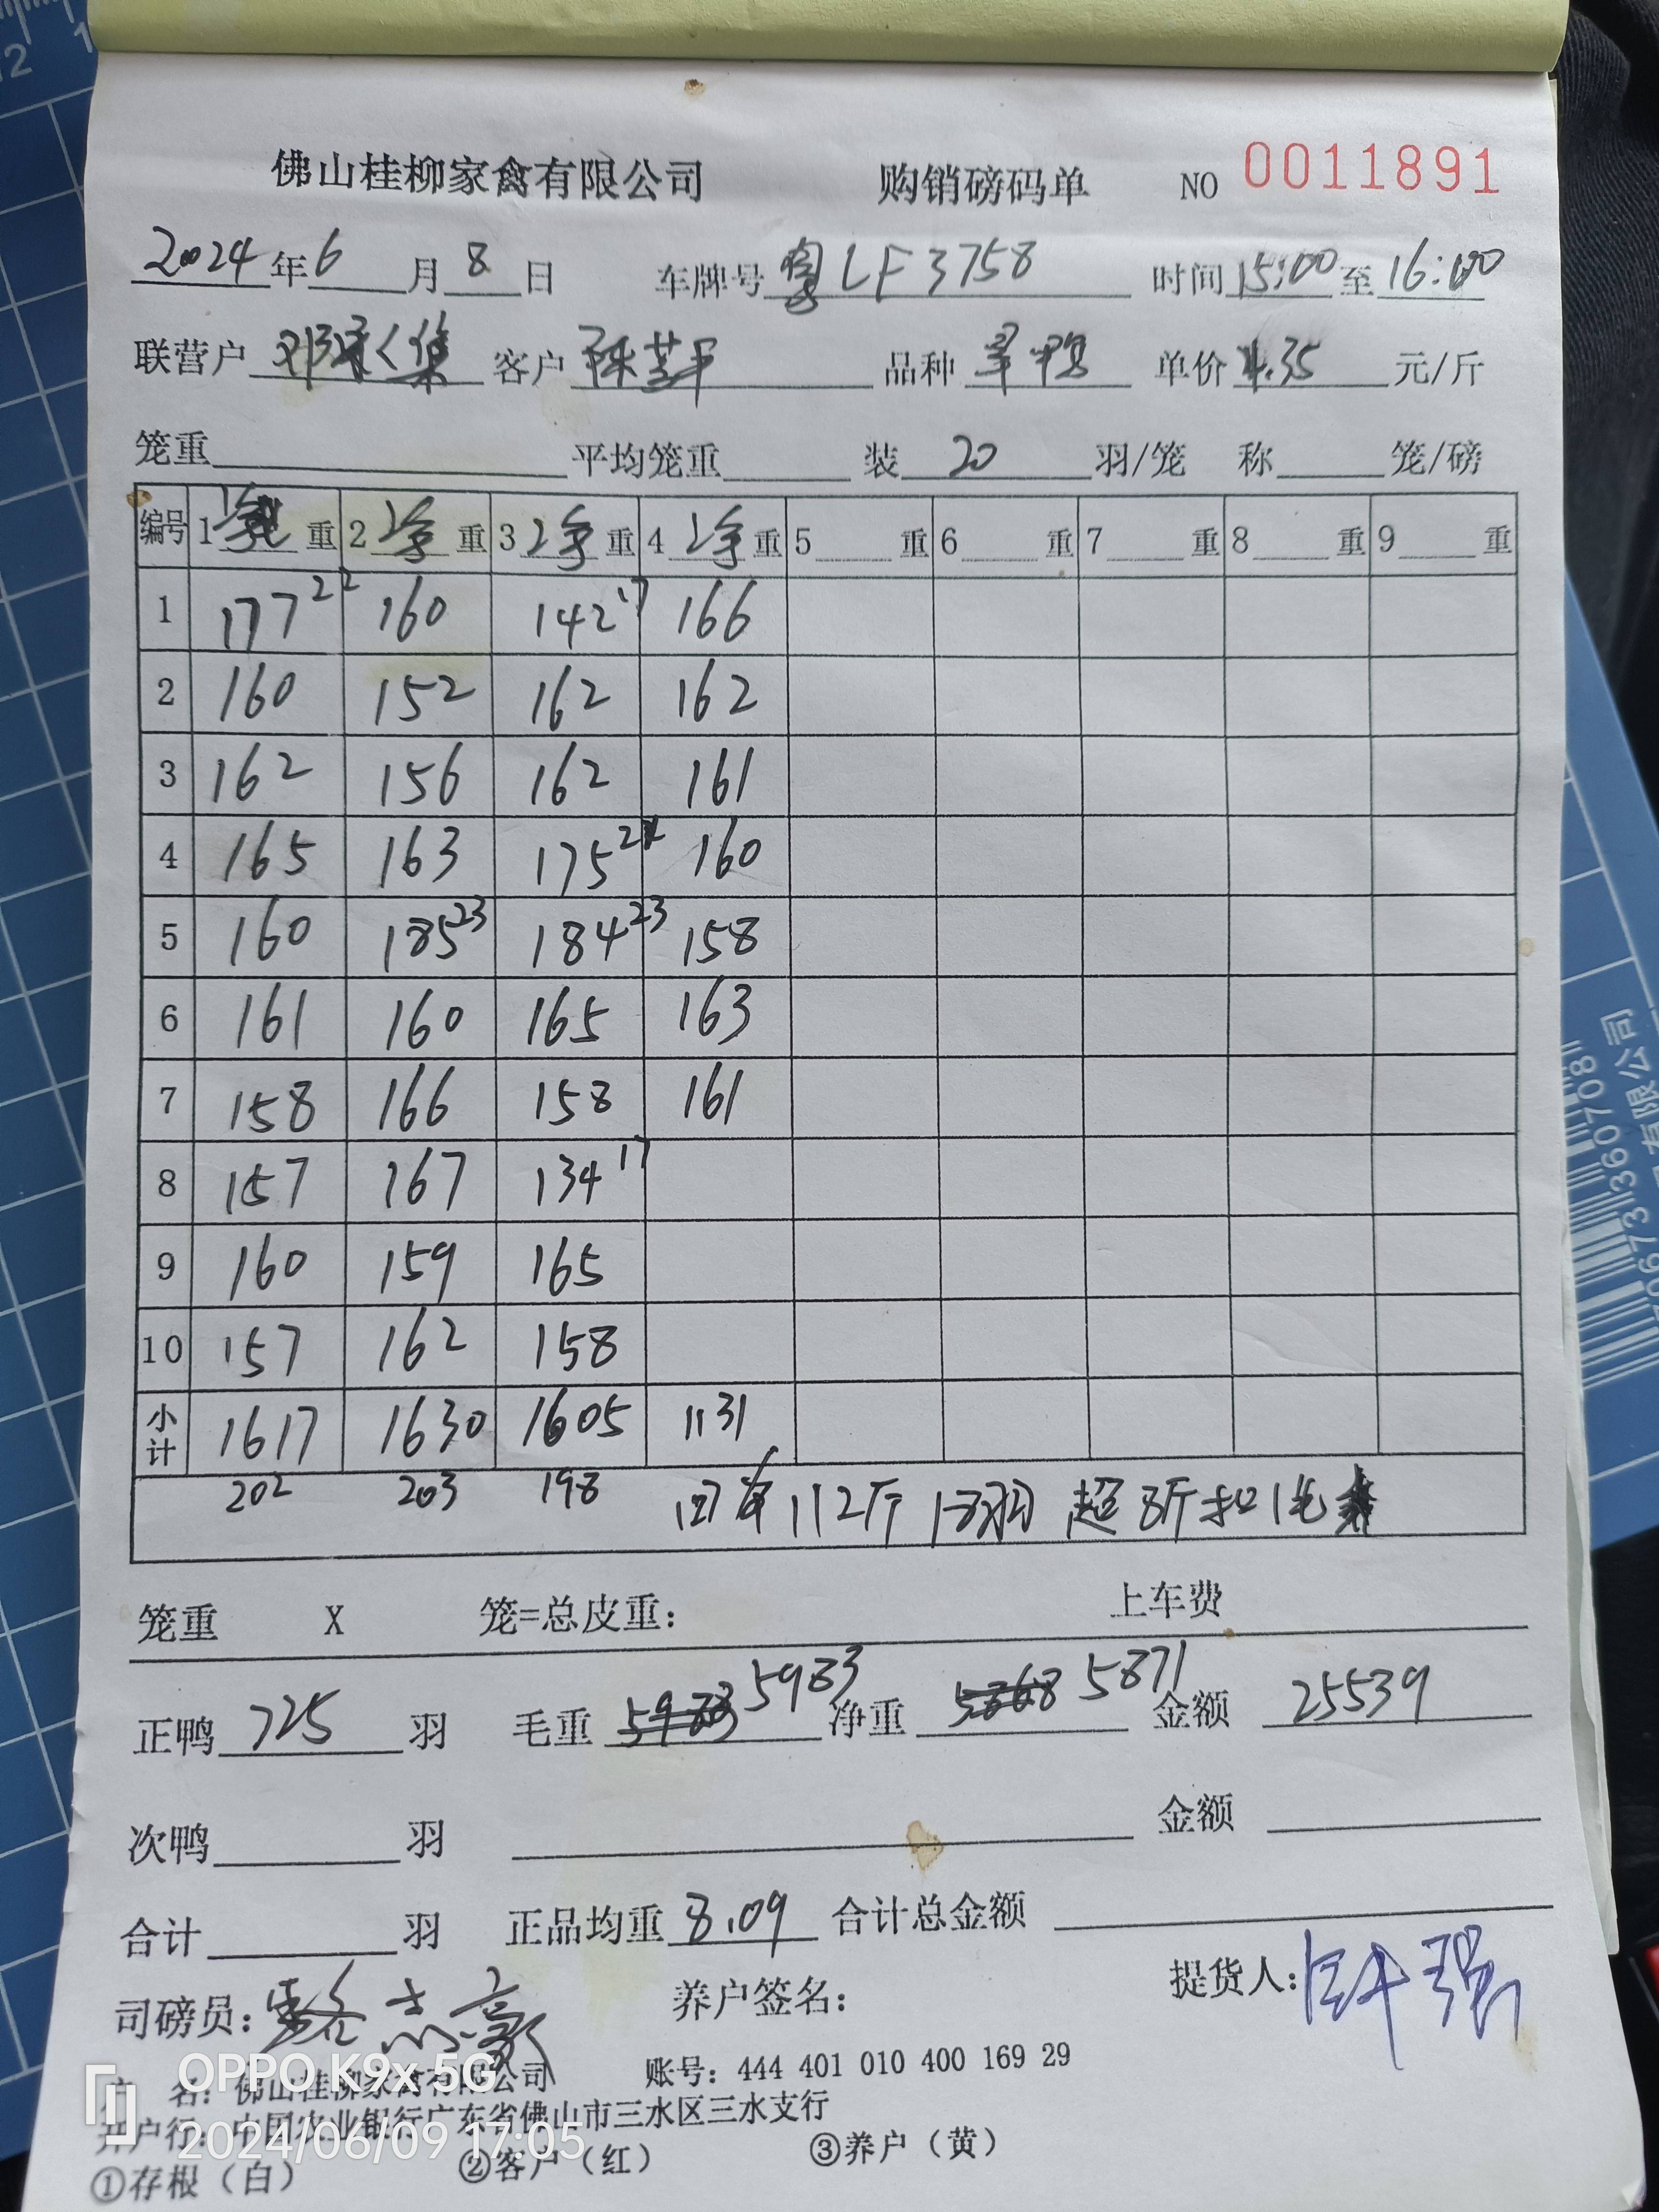 佛山桂柳家禽有限公司 购销磅码单 NO 0011891
2024年6月8日 车牌号 粤LF3758 时间 15:00 至 16:00
联营户 客户 品种 单价 4.35 元/斤
笼重 平均笼重 装 20 羽/笼 称 笼/磅
编号 1 重 2 净 重 3 净 重 4 净 重 5 重 6 重 7 重 8 重 9 重
1 177 22 160 142 17 166
2 160 152 162 162
3 162 156 162 161
4 165 163 175 160
5 160 185 23 184 23 158
6 161 160 165 163
7 158 166 158 161
8 157 167 134 17
9 160 159 165
10 157 162 158
小计 1617 1630 1605 1131
202 203 198 112斤 18羽 超8斤扣1毛
笼重 X 笼=总皮重: 上车费
正鸭 725 羽 毛重 5983 净重 5871 金额 25539
次鸭 羽 金额
合计 羽 正品均重 8.09 合计总金额
司磅员: 骆志豪 养户签名: 提货人:
户 名: 佛山桂柳家禽有限公司 账号: 444 401 010 400 169 29
开户行: 中国农业银行广东省佛山市三水区三水支行
①存根(白) ②客户(红) ③养户(黄)
OPPO K9x 5G
2024/06/09 17:05
12
3360708
有限公司